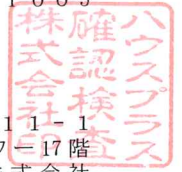 ハウスプラス
確認検査
株式会社印
11-1
ー17階
式会社